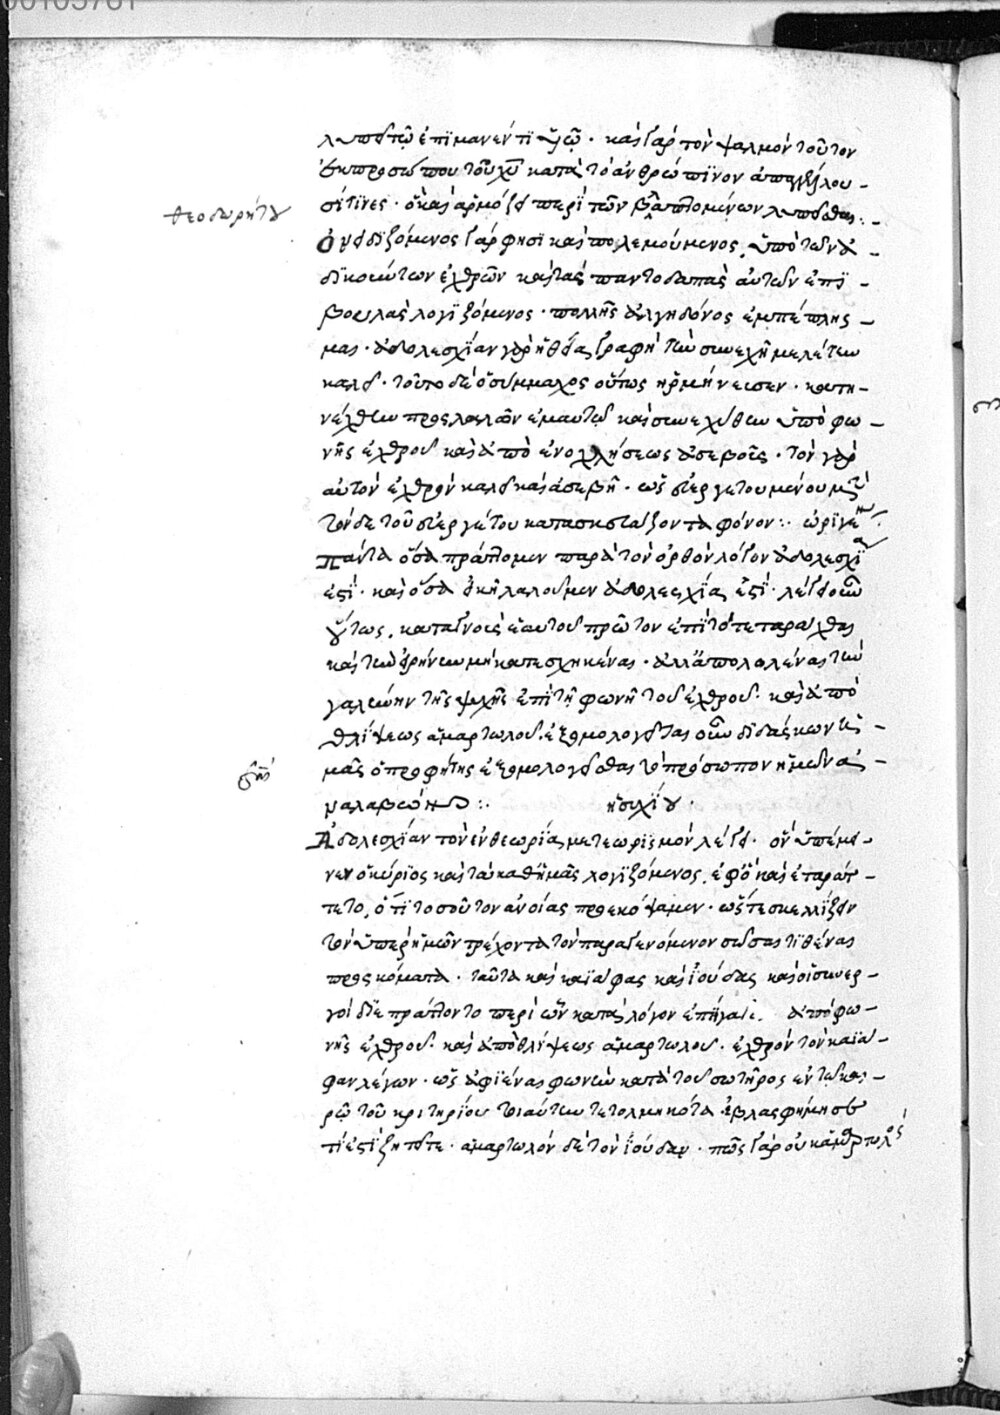 λυπεῖσθαι ἐπιμανέντι υἱῷ · καὶ γὰρ τὸν ψαλμὸν τοῦτον
ἐκ προσώπου τοῦ χυ κατὰ τὸ ἀνθρώπινον ἀπαγγέλου-
σί τινες · ὃ καὶ ἁρμόζει περὶ τῶν βλαπτομένων λυπεῖσθαι :-
θεοδωρήτου
Ονειδιζόμενος γάρ φησι καὶ πολεμούμενος, ὑπὸ τῶν ἀ-
δικούντων ἐχθρῶν καὶ τὰς παντοδαπὰς αὐτῶν ἐπι-
βουλὰς λογιζόμενος · πολλῆς ἀλγηδόνος ἐμπέπλης-
μαι · ἀδολεσχίαν γὰρ ἡ θεία γραφὴ τὴν συνεχῆ μελέτην
καλεῖ · τοῦτο δὲ ὁ σύμμαχος οὕτως ἡρμήνευσεν · κατη-
νέχθην προσλαλῶν ἐμαυτῷ καὶ συνεχύθην ὑπὸ φω-
νῆς ἐχθροῦ καὶ ἀπὸ ἐνοχλήσεως ἀσεβοῦς · τὸν γὰρ
αὐτὸν ἐχθρὸν καλεῖ καὶ ἀσεβῆ · ὡς εὐεργετουμένου μὲν
τὸν δὲ τοῦ εὐεργέτου κατασκευάζοντα φόνον :- ὠριγένους
Πάντα ὅσα πράττομεν παρὰ τὸν ὀρθὸν λόγον ἀδολεσχία
ἐστί · καὶ ὅσα εἰκῆ λαλοῦμεν ἀδολεσχία ἐστί · λέγει οὖν
οὕτως, καταγνοὺς ἑαυτοῦ πρῶτον ἐπὶ τὸ τεταράχθαι
καὶ τὴν εἰρήνην μὴ κατεσχηκέναι · ἀλλ' ἀπολωλέναι τὴν
γαλήνην τῆς ψυχῆς ἐπὶ τῇ φωνῇ τοῦ ἐχθροῦ · καὶ ἀπὸ
θλίψεως ἁμαρτωλοῦ · ἐξομολογεῖται οὖν διδάσκων ἡ-
μᾶς ὁ προφήτης ἐξομολογεῖσθαι τὸ πρόσωπον ἡμῶν ἀ-
ναλαβών :- ἡσυχίου ·
Ἀδολεσχίαν τὸν ἐν θεωρίᾳ μετεωρισμὸν λέγει · ὃν ὑπέμει-
νεν ὁ κύριος καὶ τὰ καθ' ἡμᾶς λογιζόμενος, ἐφ' ᾧ καὶ ἐταράτ-
τετο, ὅτι τοσοῦτον ἀνοίας προεκόψαμεν · ὥστε σκελίζειν
τὸν ὑπὲρ ἡμῶν τρέχοντα τὸν παραγενόμενον σῶσαι τιθέναι
προσκόματα · ταῦτα καὶ καϊάφας καὶ ἰούδας καὶ οἱ συνερ-
γοὶ διεπράττοντο περὶ ὧν κατὰ λόγον ἐπήγαγε, ἀπὸ φω-
νῆς ἐχθροῦ · καὶ ἀπὸ θλίψεως ἁμαρτωλοῦ · ἐχθρὸν τὸν καϊά-
φαν λέγων · ὡς ἀφιέναι φωνὴν κατὰ τοῦ σωτῆρος ἐν τῷ και-
ρῷ τοῦ κριτηρίου τοιαύτην τετολμηκότα ἐβλασφήμησε
τί ἔτι ζητεῖτε · ἁμαρτωλὸν δὲ τὸν ἰούδαν · πῶς γὰρ οὐχ ἁμαρτωλός